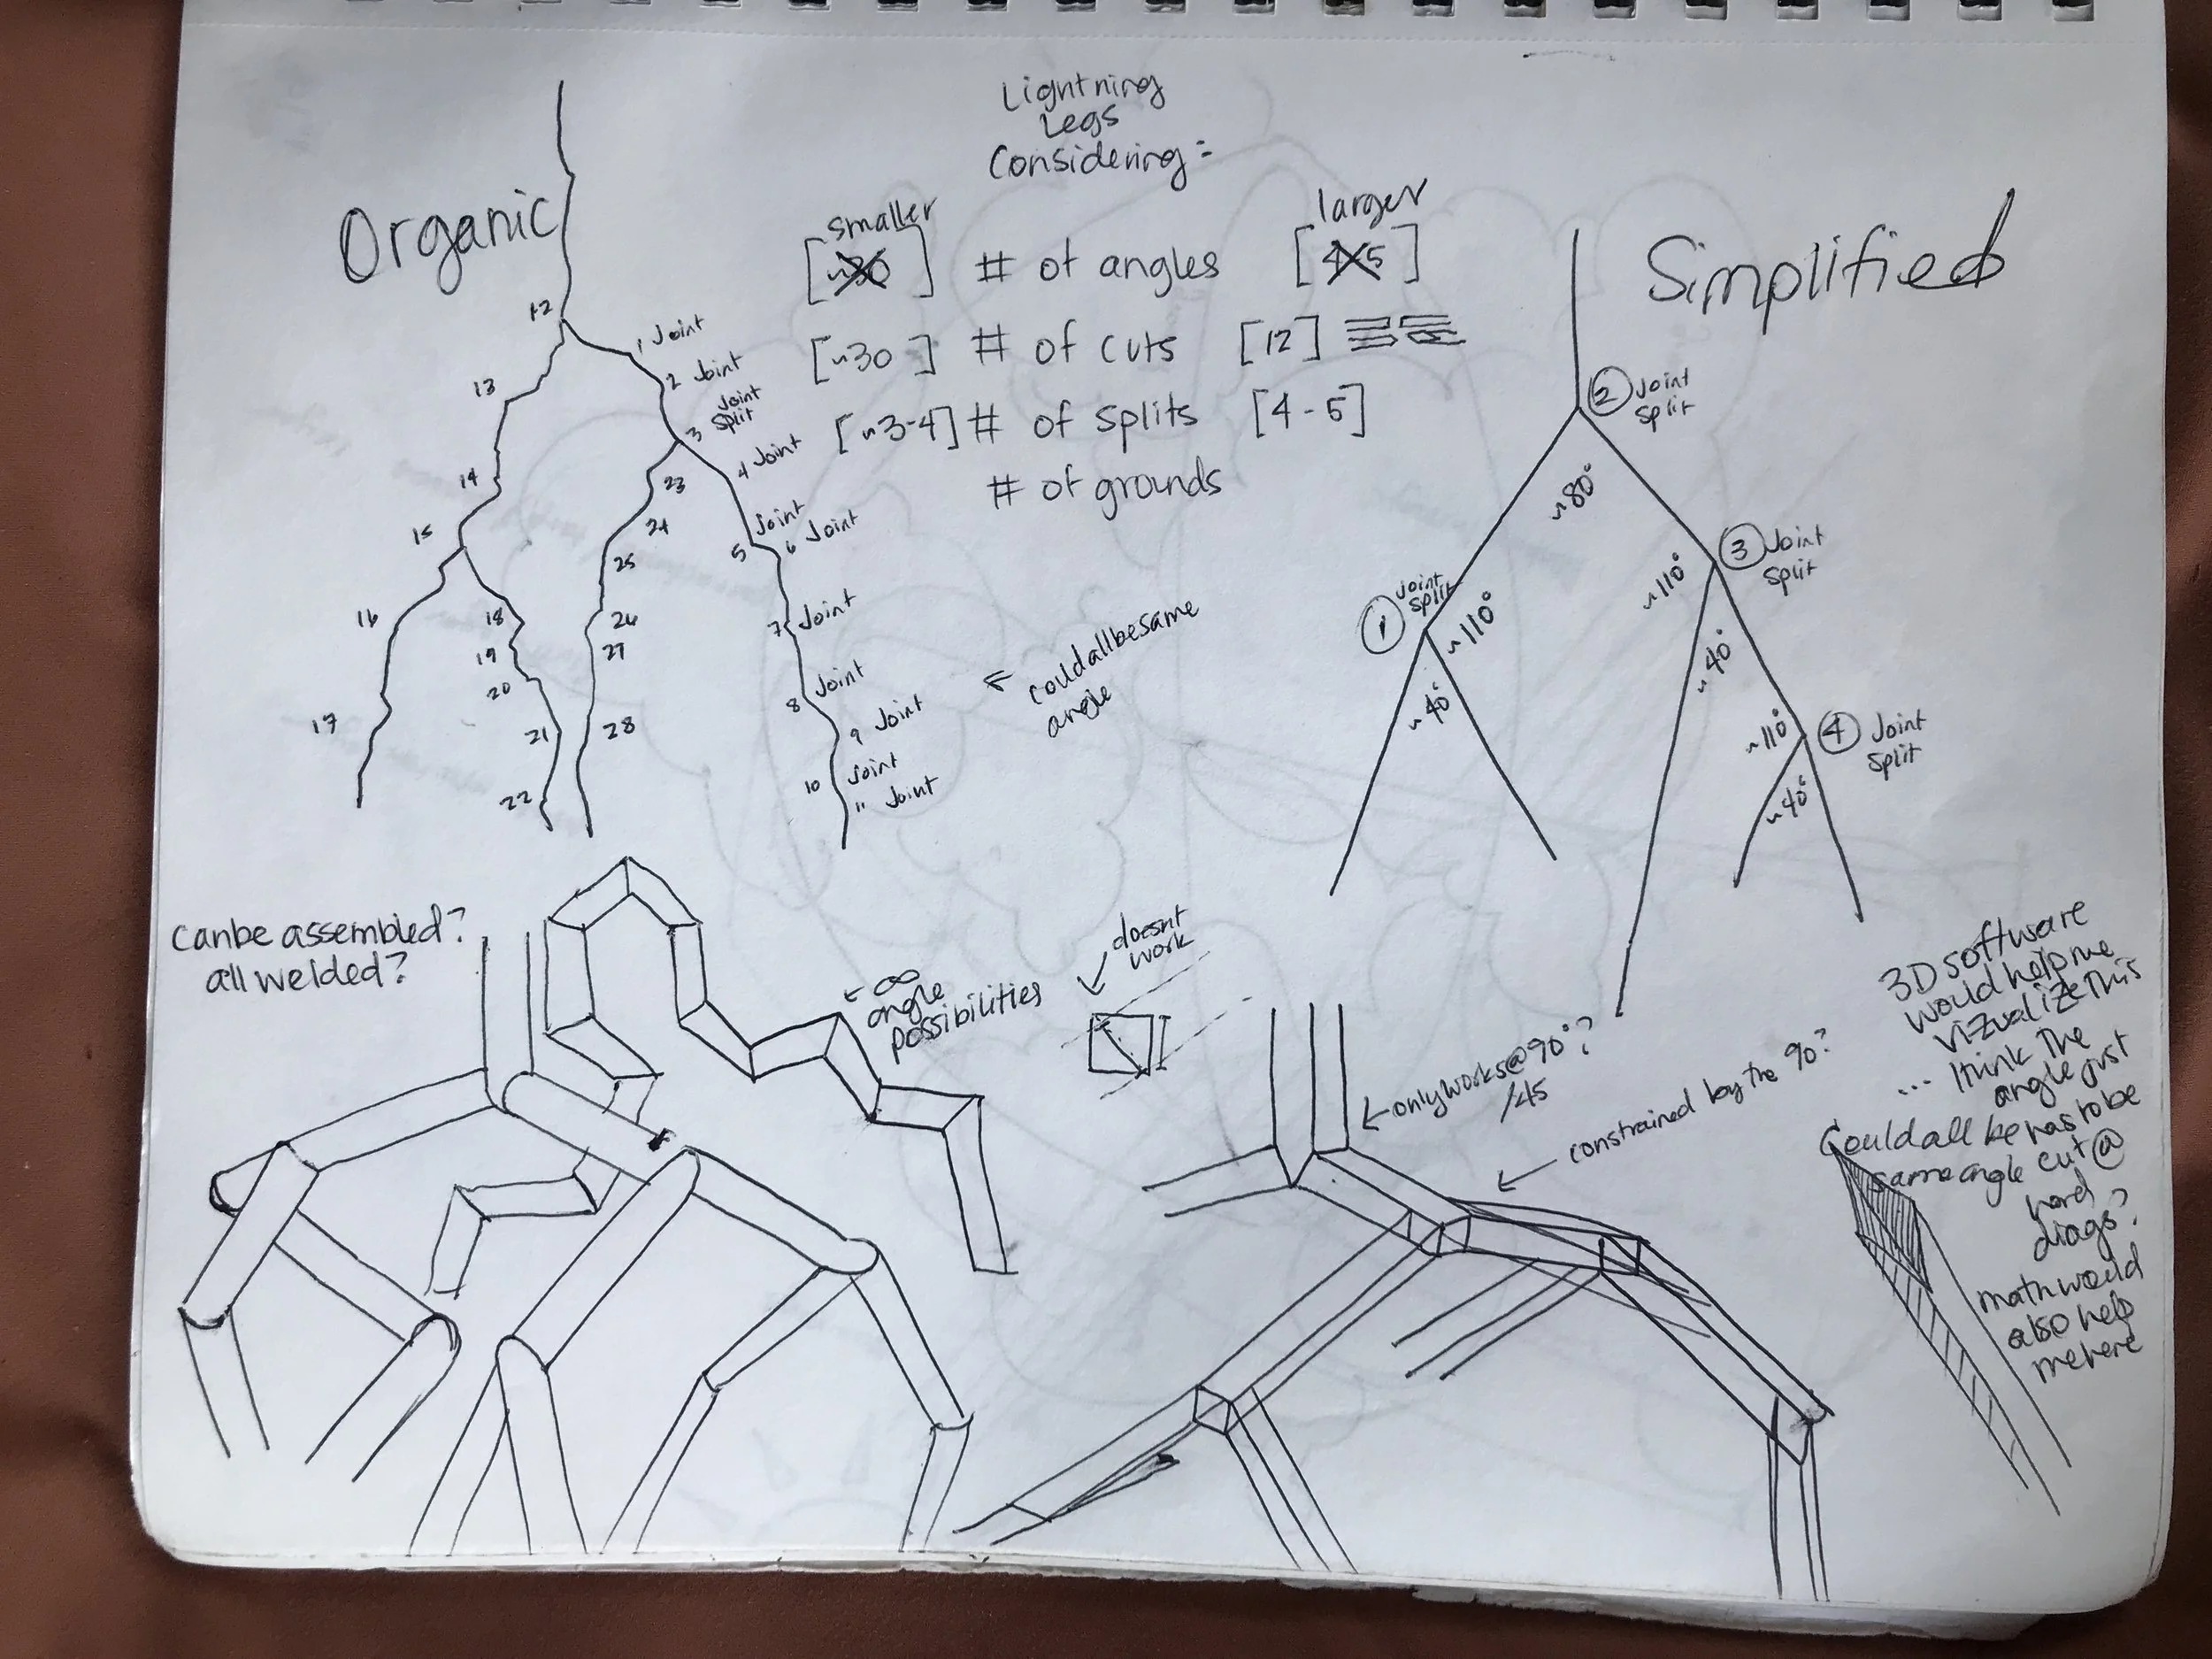 Lightning
Legs
Considering:
Organic
Simplified
smaller
larger
[~30] # of angles [4-5]
[~30] # of cuts [12]
[~3-4] # of splits [4-5]
# of grounds
12
1 Joint
2 Joint
Joint
3 Split
4 Joint
Joint
5
6 Joint
7 Joint
8 Joint
9 Joint
10 Joint
11 Joint
13
14
15
16
17
18
19
20
21
22
23
24
25
26
27
28
← could all be same
angle
2 Joint
Split
~80°
Joint
1 Split
~110°
~40°
3 Joint
Split
~110°
~40°
4 Joint
Split
~110°
~40°
can be assembled?
all welded?
← ∞
angle
possibilities
doesnt
work
← only works @ 90°?
/45
constrained by the 90?
3D software
would help me
vizualize this
... I think the
angle just
has to be
cut @
hard
diags?
Could all be
same angle
math would
also help
me here